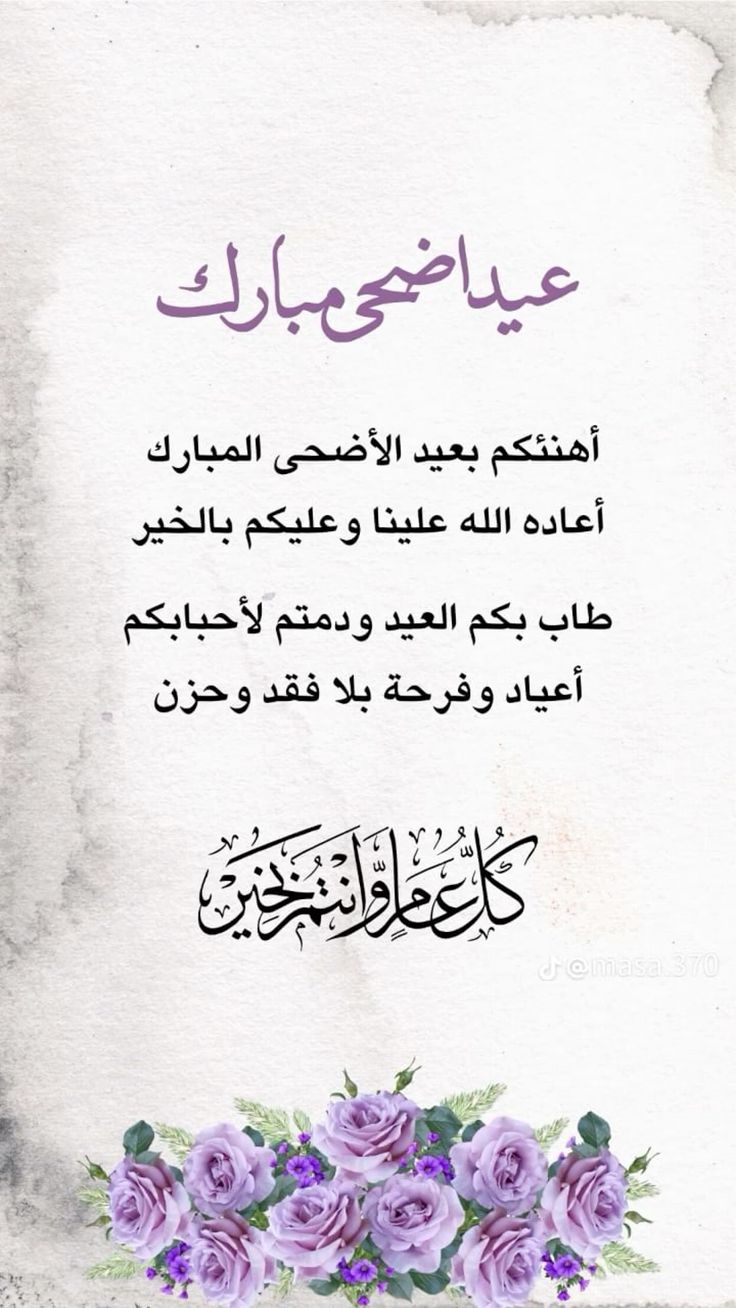 عيد اضحى مبارك
أهنئكم بعيد الأضحى المبارك
أعاده الله علينا وعليكم بالخير
طاب بكم العيد ودمتم لأحبابكم
أعياد وفرحة بلا فقد وحزن
كُلُّ عَامٍ وَّانتُمْ بَخَيْرٍ
@masa.370